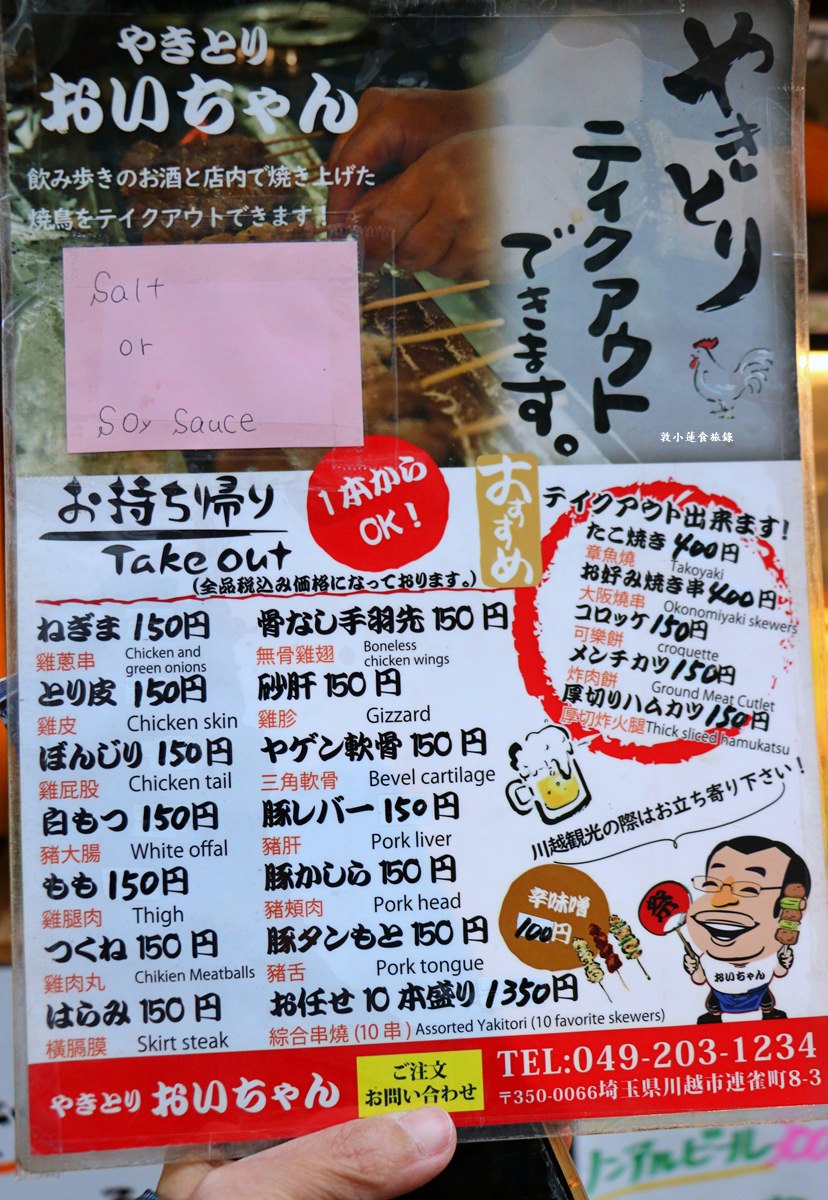 やきとり
おいちゃん
飲み歩きのお酒と店内で焼き上げた
焼鳥をテイクアウトできます！
Salt
or
Soy Sauce
やきとり
テイクアウト
できます。
敦小蓮食旅錄
お持ち帰り
Take out
(全品税込み価格になっております。)
1本から
OK！
おすすめ
ねぎま 150円
雞蔥串 Chicken and
green onions
とり皮 150円
雞皮 Chicken skin
ぼんじり 150円
雞屁股 Chicken tail
白もつ 150円
豬大腸 White offal
もも 150円
雞腿肉 Thigh
つくね 150円
雞肉丸 Chikien Meatballs
はらみ 150円
橫膈膜 Skirt steak
骨なし手羽先 150円
無骨雞翅 Boneless
chicken wings
砂肝 150円
雞胗 Gizzard
ヤゲン軟骨 150円
三角軟骨 Bevel cartilage
豚レバー 150円
豬肝 Pork liver
豚かしら 150円
豬頰肉 Pork head
豚タンもと 150円
豬舌 Pork tongue
お任せ10本盛り 1350円
綜合串燒(10串) Assorted Yakitori (10 favorite skewers)
ティクアウト出来ます!
たこ焼き 400円
章魚燒 Takoyaki
お好み焼き串 400円
大阪燒串 Okonomiyaki skewers
コロッケ 150円
可樂餅 croquette
メンチカツ 150円
炸肉餅 Ground Meat Cutlet
厚切りハムカツ 150円
厚切炸火腿 Thick sliced hamukatsu
川越観光の際はお立ち寄り下さい！
辛味噌
100円
祭
おいちゃん
やきとり おいちゃん
ご注文
お問い合わせ
TEL:049-203-1234
〒350-0066埼玉県川越市連雀町8-3
ノンアルビール